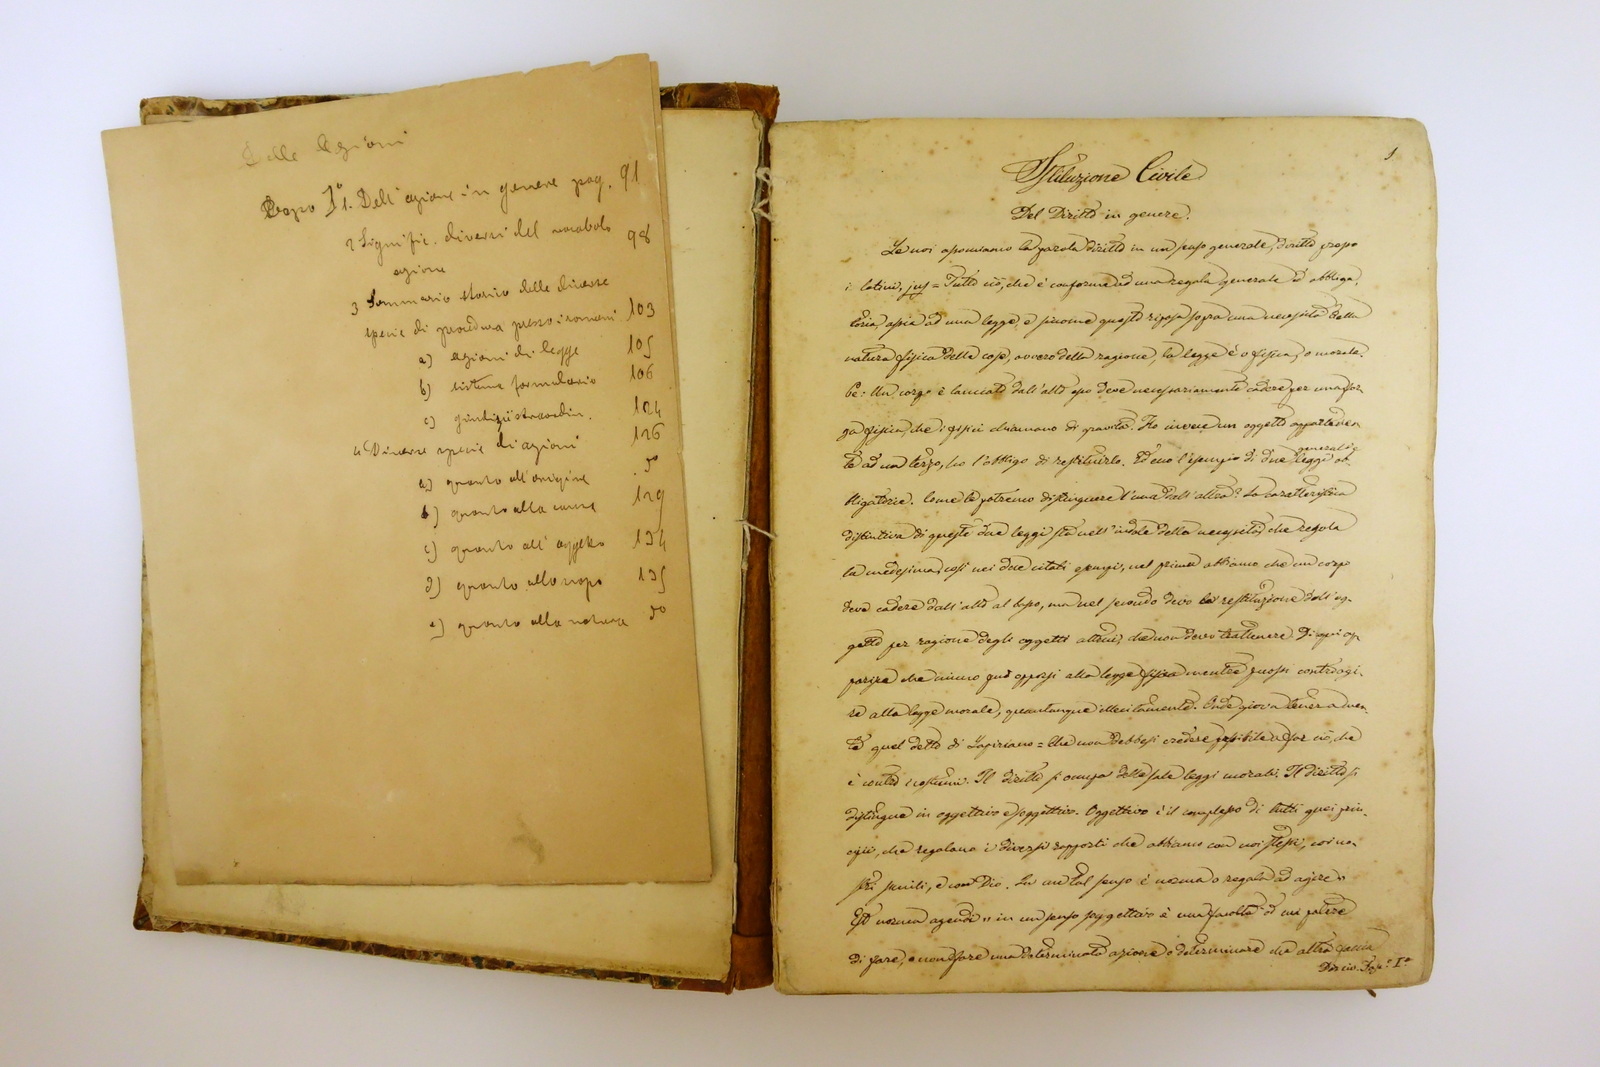 Delle Azioni
Capo I° 1. Dell'azione in genere pag. 91
2 Signific. diversi del vocabolo 98
azione
3 Sommario storico delle diverse
specie di procedura presso i romani 103
a) azioni di legge 105
b) sistema formulario 106
c) giudizii straordin. 124
4 Diverse specie di azioni 126
a) quanto all'origine
b) quanto alla causa 129
c) quanto all'oggetto 134
d) quanto allo scopo 135
e) quanto alla natura
1
Istituzione Civile
Del Diritto in genere.
Se noi esponiamo la parola diritto in un senso generale, diritto presso
i latini, jus = Tutto ciò, che è conforme ad una regola generale ed obbliga-
toria, ossia ad una legge, e siccome questa riposa sopra una necessità della
natura fisica delle cose, ovvero della ragione, la legge è o fisica, o mora-
le: Un corpo è lanciato dall'alto esso deve necessariamente cadere per una for-
za fisica, che i fisici chiamano di gravità. Ho invece un oggetto appartenen-
te ad un terzo, ho l'obbligo di restituirlo. Ed ecco l'esempio di due leggi generali ob-
bligatorie. Come le potremo distinguere l'una dall'altra? La caratteristica
distintiva di queste due leggi sta nell'indole della necessità, che regola
la medesima, così nei due citati esempi, nel primo abbiamo che un corpo
deve cadere dall'alto al basso, ma nel secondo devo la restituzione dell'og-
getto per ragione degli oggetti altrui, che non devo trattenere. Di qui ap-
parisce che niuno può opporsi alla legge fisica mentre puossi contraagi-
re alla legge morale, quantunque illecitamente. Onde giova tenere a men-
te quel detto di Papiniano = Che non debbesi credere possibile a far ciò, che
è contro i costumi. Il diritto si occupa delle sole leggi morali. Il diritto si
distingue in oggettivo e soggettivo. Oggettivo è il complesso di tutti quei prin-
cipii, che regolano i diversi rapporti che abbiamo con noi stessi, coi no-
stri simili, e con Dio. In un tal senso è norma o regola ad agire "
Est norma agendi " in un senso soggettivo è una facoltà od un potere
di fare, o non fare una determinata azione o determinare che altri faccia